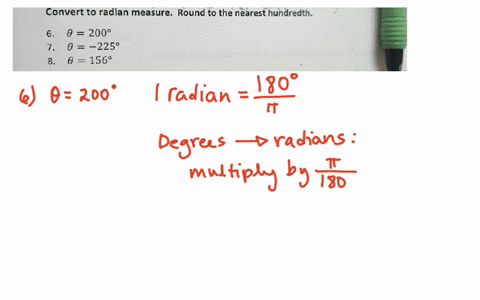 Convert to radian measure. Round to the nearest hundredth.
6. θ = 200°
7. θ = −225°
8. θ = 156°
6) θ = 200° 1 radian = 180°/π
Degrees → radians:
multiply by π/180